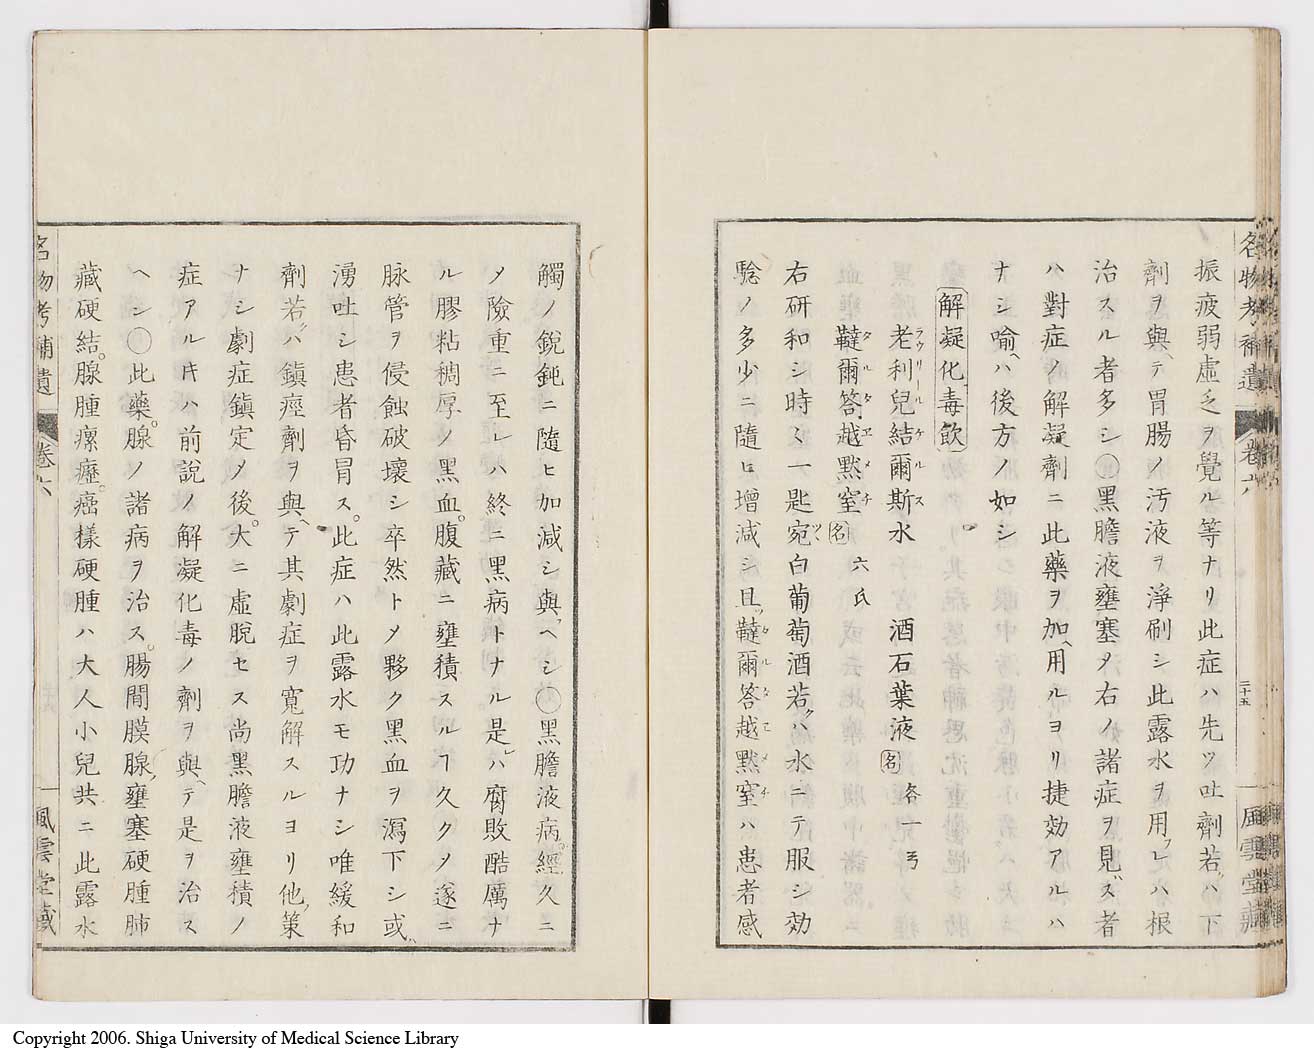 名物考補遺 卷六 二十五 風雲堂藏
振疲弱虛乏ヲ覺ル等ナリ此症ハ先ツ吐劑若クハ下
劑ヲ與ヘテ胃腸ノ汚液ヲ淨刷シ此露水ヲ用フレハ根
治スル者多シ〇黑膽液壅塞メ右ノ諸症ヲ見ズ者
ハ對症ノ解凝劑ニ此藥ヲ加ヘ用ルヨリ捷効アルハ
ナシ喻ヘハ後方ノ如シ
解凝化毒飮
老利兒結爾斯水 酒石葉液 名 各一ヲ
ラウリールケルス
韃爾答越黙窒 名 六氏
タルタエメチ
右研和シ時々一匙宛ツヽ白葡萄酒若クハ水ニテ服シ効
騐ノ多少ニ隨ヒ增減シ且ツ韃爾答越黙窒ハ患者感
タルタエメチ
觸ノ銳鈍ニ隨ヒ加減シ與フヘシ〇黑膽液病。經久ニ
メ險重ニ至レハ終ニ黑病トナル是レハ腐敗酷厲ナ
ル膠粘稠厚ノ黑血。腹藏ニ壅積スルヿ久クメ遂ニ
脉管ヲ侵蝕破壞シ卒然トメ夥ク黑血ヲ瀉下シ或ハ
湧吐シ患者昏冒ス。此症ハ此露水モ功ナシ唯緩和
劑若クハ鎭痙劑ヲ與ヘテ其劇症ヲ寬解スルヨリ他ノ策
ナシ劇症鎭定メ後。大ニ虛脫セス尚黑膽液壅積ノ
症アル𪜈ハ前說ノ解凝化毒ノ劑ヲ與ヘテ是ヲ治ス
ヘシ〇此藥。腺ノ諸病ヲ治ス。腸間膜腺ノ壅塞硬腫肺
藏硬結。腺腫瘰癧。癌樣硬腫ハ大人小兒共ニ此露水
名物考補遺 卷六 風雲堂藏
Copyright 2006. Shiga University of Medical Science Library